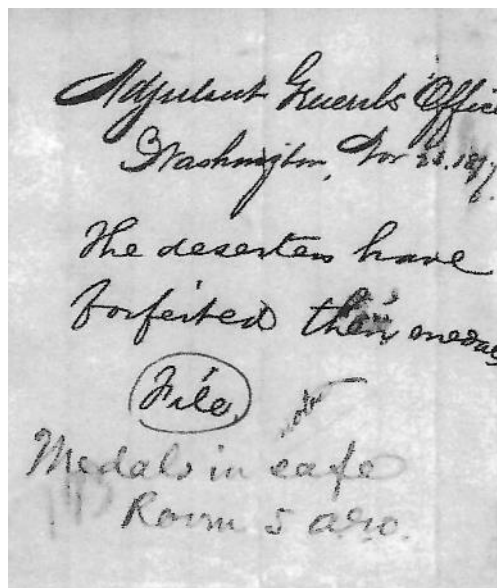 Adjutant General's Office
Washington, Nov 23. 1877.
The deserters have
forfeited their medals
File.
Medals in safe
Room 5 AGO.